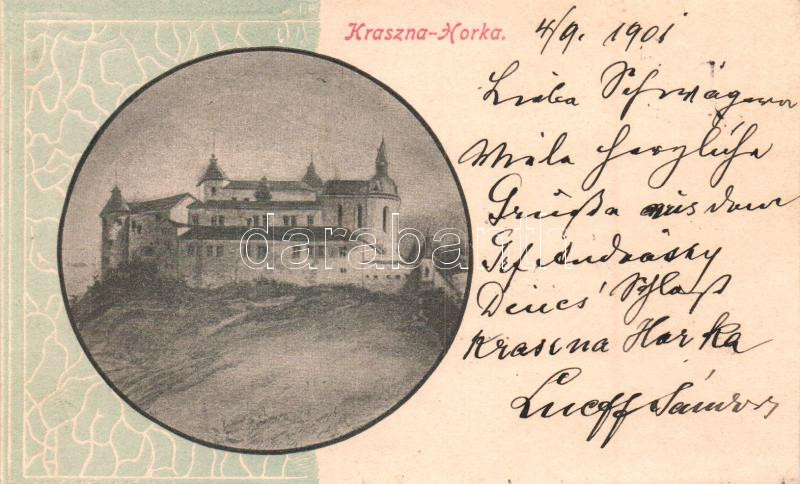 Kraszna-Horka.
4/9. 1901
Liebe Schwägerin
Viele herzliche
Grüße aus dem
Gf Andrássy
Dénes' Schloß
Kraszna Horka
Sándor
darabanth